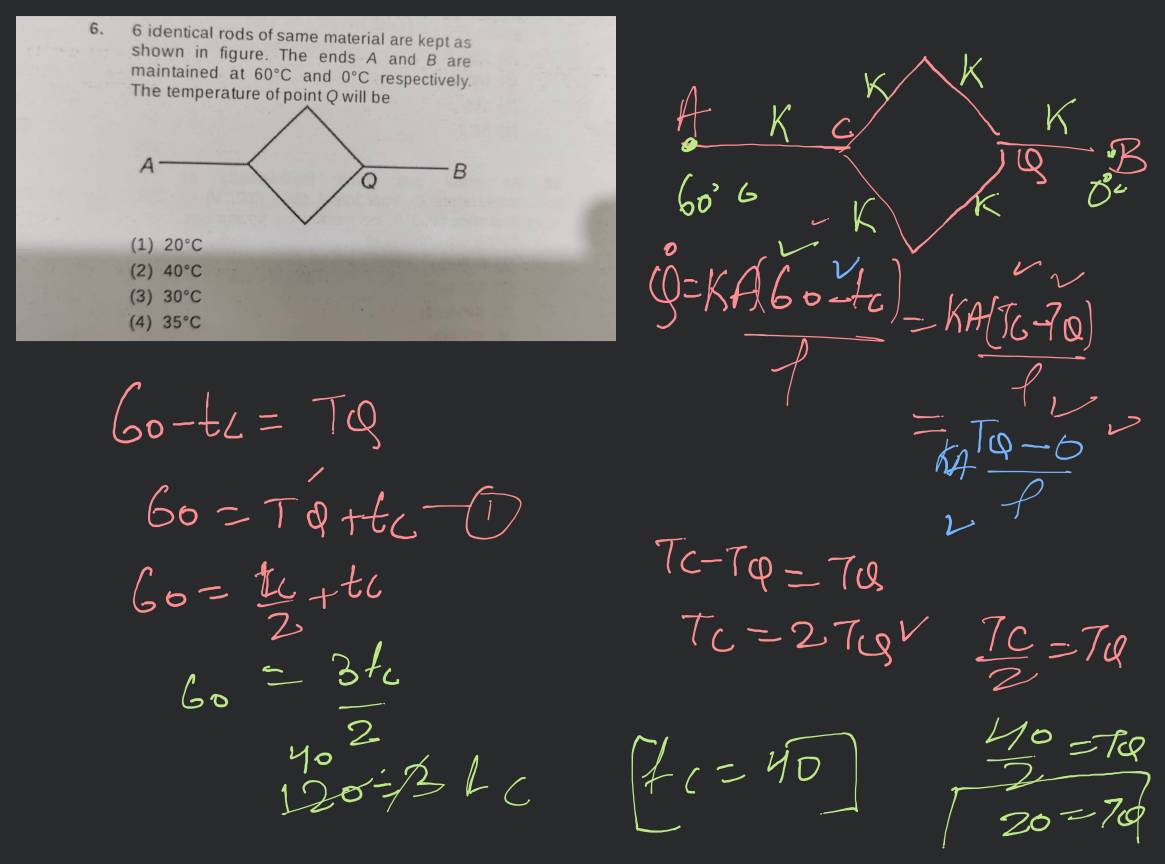 6. 6 identical rods of same material are kept as
shown in figure. The ends A and B are
maintained at 60°C and 0°C respectively.
The temperature of point Q will be
A
Q
B
(1) 20°C
(2) 40°C
(3) 30°C
(4) 35°C
A K C K K K Q B
60° C K K 0°C
Q = KA(60-tc)/l = KA(Tc-TQ)/l
= KA TQ-0/l
60-tc = TQ
60 = TQ+tc — 1
60 = tc/2 + tc
60 = 3tc/2
40
120 = 3tc
Tc-TQ = TQ
Tc = 2TQ
Tc/2 = TQ
tc = 40
40/2 = TQ
20 = TQ